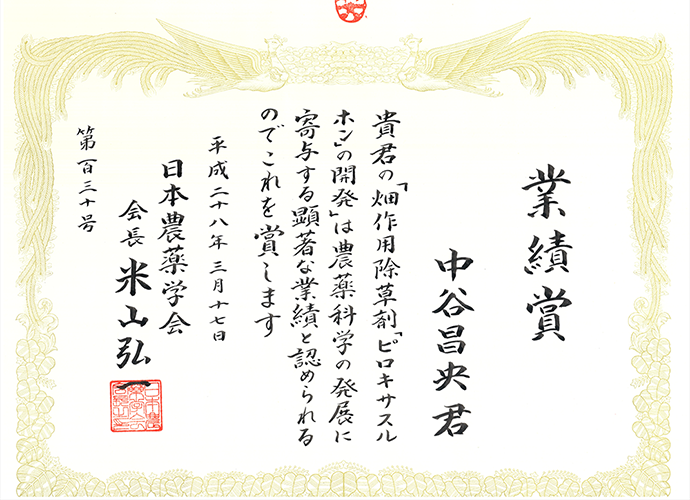 業績賞
中谷昌央君
貴君の「畑作用除草剤「ピロキサスル
ホン」の開発」は農薬科学の発展に
寄与する顕著な業績と認められる
のでこれを賞します
平成二十八年三月十七日
日本農薬学会
会長 米山弘一
第一百三十号